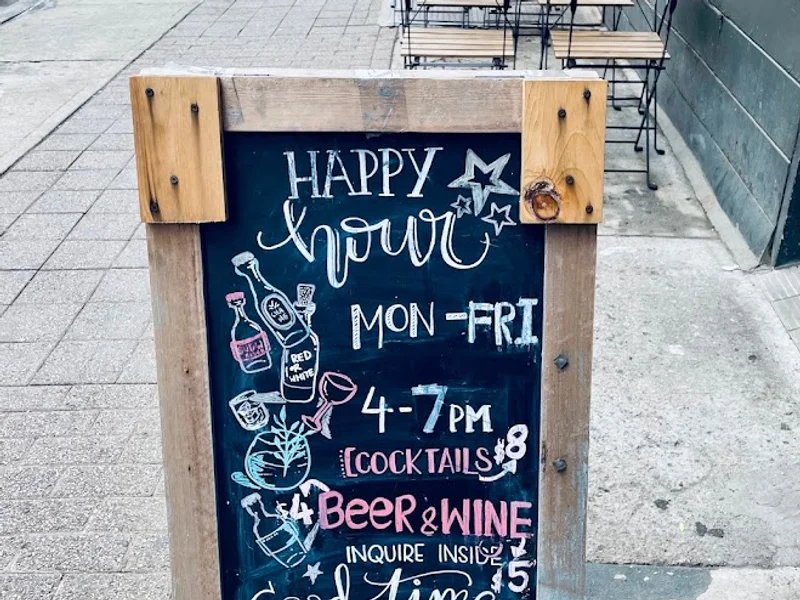 HAPPY
hour
MON-FRI
RED
OR
WHITE
4-7PM
COCKTAILS $8
$4 BEER & WINE
INQUIRE INSIDE $5
Good time